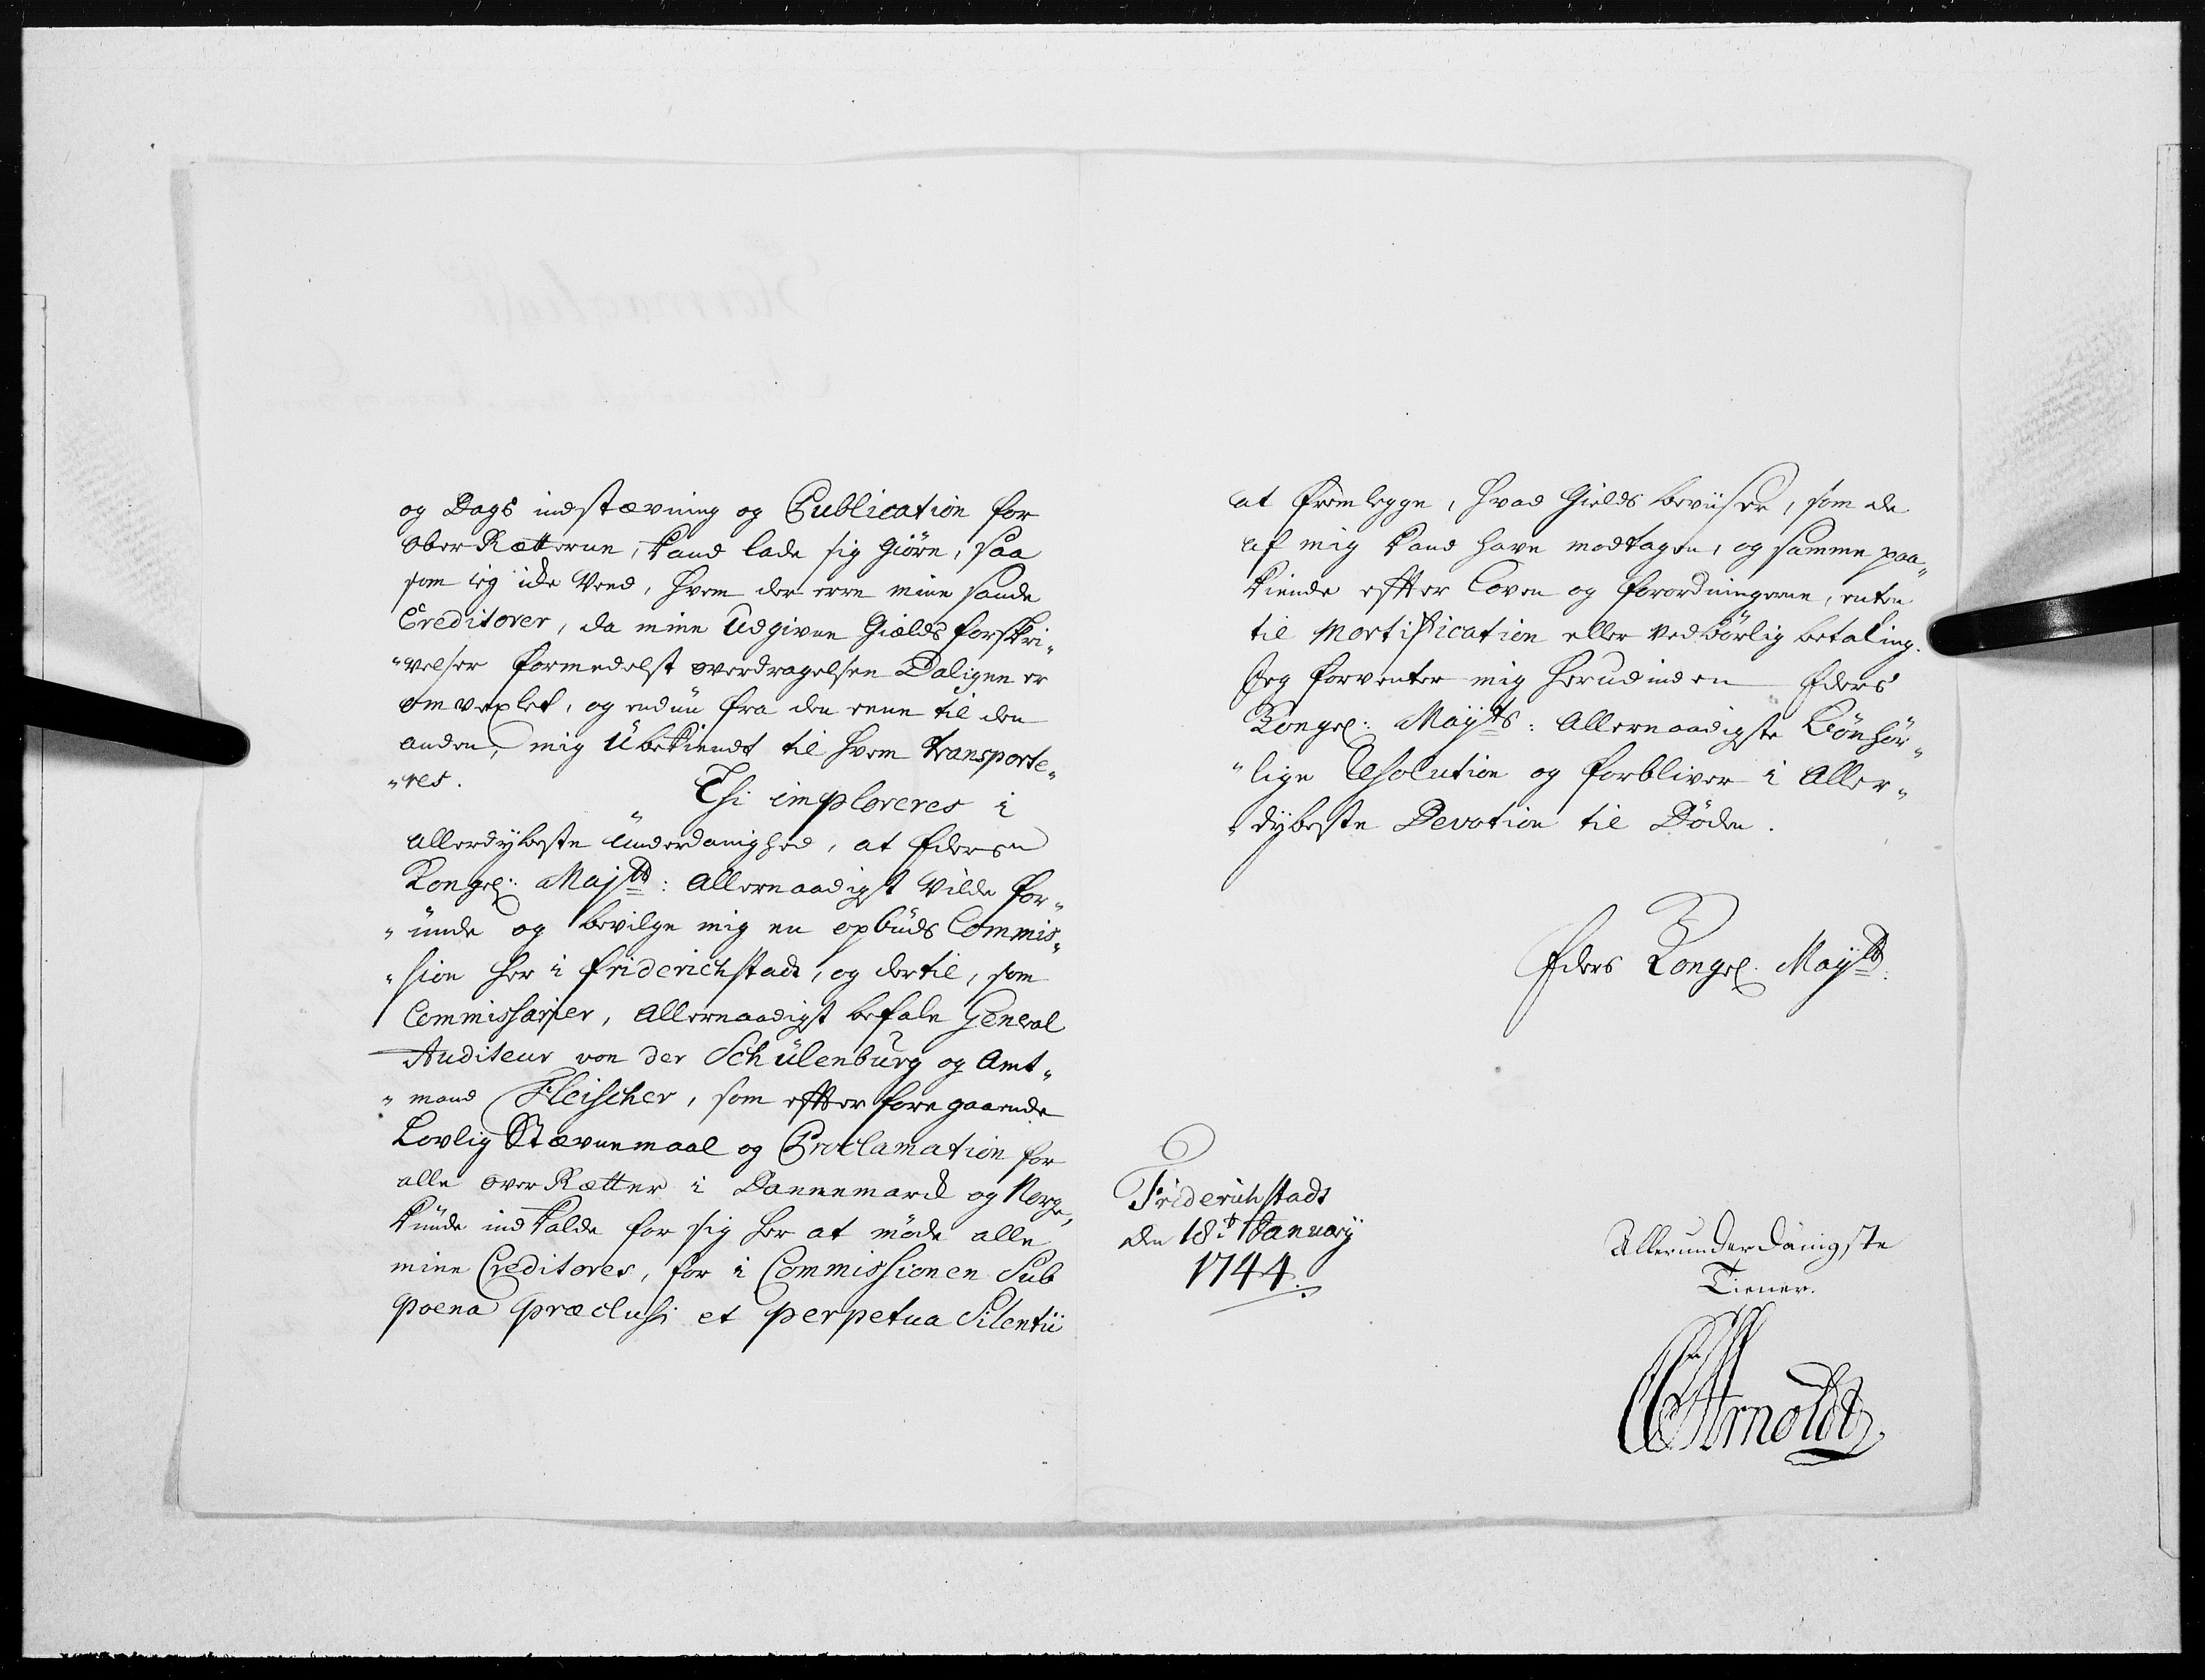 og Dags indstævning og Publication for
Ober Rætterne, kand lade sig giøre, saa
som ieg icke Veed, hvem der ere mine sande
Creditorer, da mine Udgivne Gields forskri„
„velser formedelst overdragelsen Daligen er
omvexlet, og endnü fra den eene til den
anden, mig übekiendt til hvem transporte„
„res.
Thi imploreres i
allerdybeste Ünderdanighed, at Eders
Kongel: Majts: Allernaadigst Vilde for„
„ünde og bevilge mig en opbüds Commis„
„sion her i Friderichstadt, og dertil, som
Commissarier, Allernaadigst befale General
Auditeur von der Schülenbürg og Amt„
„mand Fleischer, som effter foregaaende
Lovlig Stævnemaal og Proclamation for
alle over Rætter i Dannemarck og Norge,
kunde indkalde for sig her at møde alle
mine Creditores, for i Commissionen Sub
poena præclusi et perpetua Silentii
at fremlegge, hvad Gields beviiser, som de
af mig kand have modtagen, og samme paa„
kiende effter Loven og forordningerne, enten
til Mortification eller Vedbörlig betaling.
Jeg forventer mig herudinden Eders
Kongel: Mayts: Allernaadigste Bönhör„
„lige Resolution og forbliver i Aller„
„dybeste Devotion til Döden.
Eders Kongel. Mayts.
Friderichstadt
den 18de January
1744.
Allerunderdanigste
Tiener.
Arnoldt